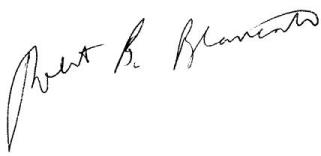 Robert B. Blancato